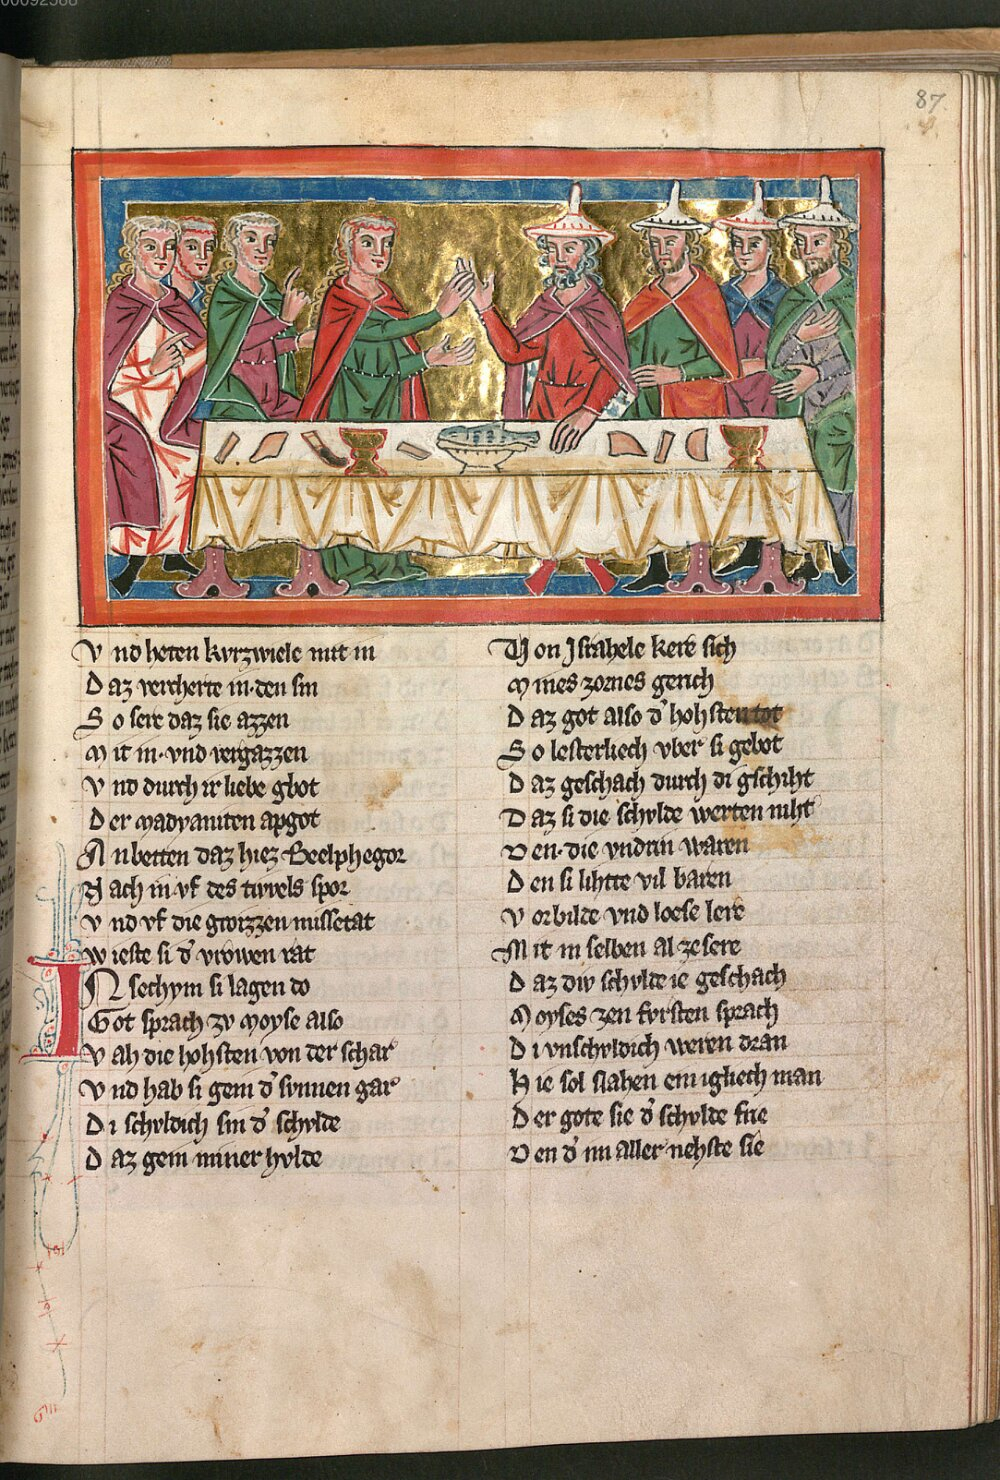 00092588
87
Vnd heten kvrzwiele mit in
Daz vercherte in · den sin
So sere daz sie azzen
Mit in · vnd vergazzen
Vnd durch ir liebe gbot
Der madyaniten apgot
Anbetten daz hiez Beelphegor
Nach in vf des tievels spor
Vnd vf die grozzen missetat
wieste si d' vrowen rat
IN sechym si lagen do
Got sprach zv moyse also
Vah die hohsten von der schar
Vnd hab si gein d' svnnen gar
Di schvldich sin d' schvlde
Daz gein miner hvlde
Von Jsrahele kere sich
Mines zornes gerich
Daz got also d' hohsten tot
So lesterliech vber si gebot
Daz geschach durch di gschiht
Daz si die schvlde werten niht
Den · die vndrin waren
Den si lihtte vil baren
Vorbilde vnd loese lere
Mit in selben al ze sere
Daz div schvlde ie geschach
Moyses zen fvrsten sprach
Di vnschvldich weren dran
Hie sol slahen emigliech man
Der gote sie d' schvlde frie
Den d' im aller nehste sie